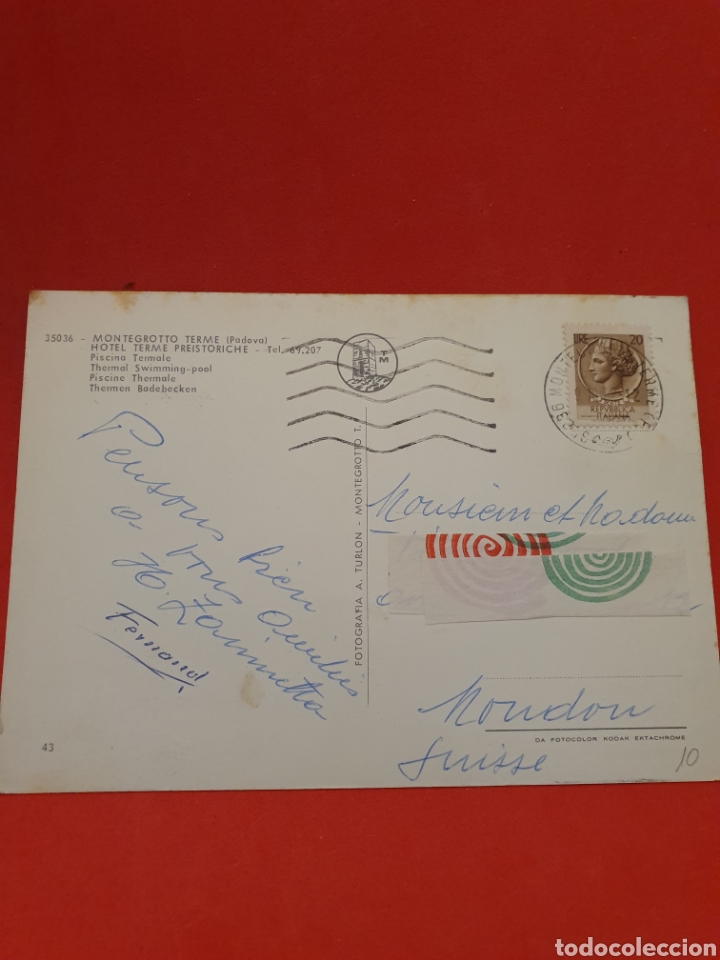 35036 - MONTEGROTTO TERME (Padova)
HOTEL TERME PREISTORICHE - Tel. 69.207
Piscina Termale
Thermal Swimming-pool
Piscine Thermale
Thermen Badebecken
TM
LIRE 20
REPVBBLICA
ITALIANA
Pensons bien
a vous
Fernand
FOTOGRAFIA A. TURLON - MONTEGROTTO T.
Monsieur et Madame
Moudon
Suisse
DA FOTOCOLOR KODAK EKTACHROME
43
10
todocoleccion